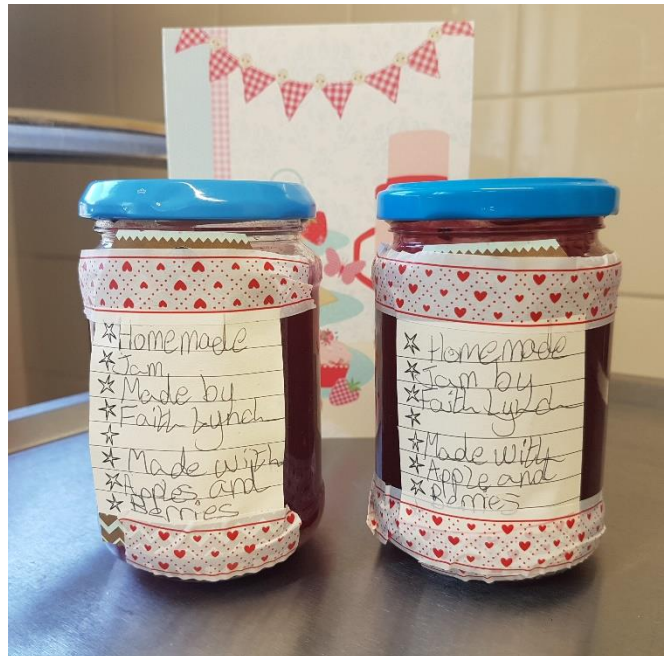 Homemade
Jam
Made by
Faith Lynch
Made with
Apples and
Berries
Homemade
Jam by
Faith Lynch
Made with
Apple and
Berries